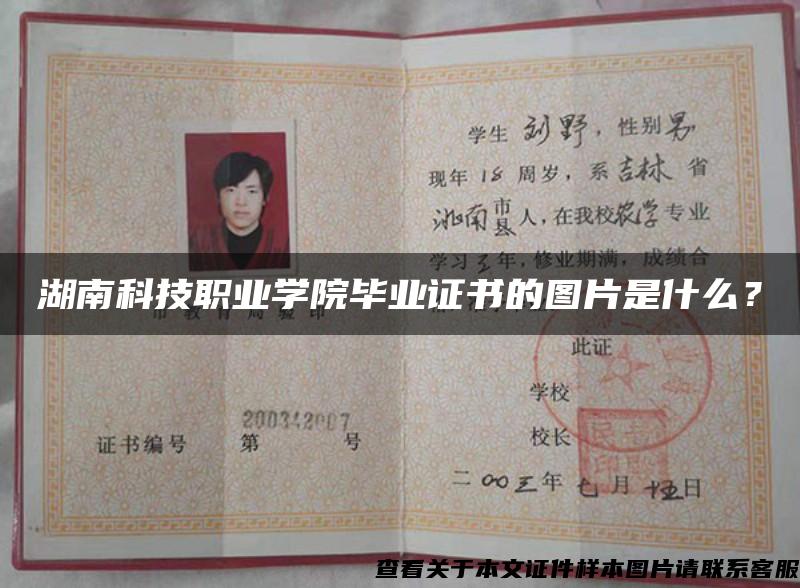 学生 刘野，性别男
现年 18 周岁，系吉林 省
洮南 市县 人，在我校农学专业
学习三年，修业期满，成绩合
湖南科技职业学院毕业证书的图片是什么？
市教育局验印
此证
学校
校长
证书编号 第 200342007 号
二〇〇三年 七 月 十五日
查看关于本文证件样本图片请联系客服